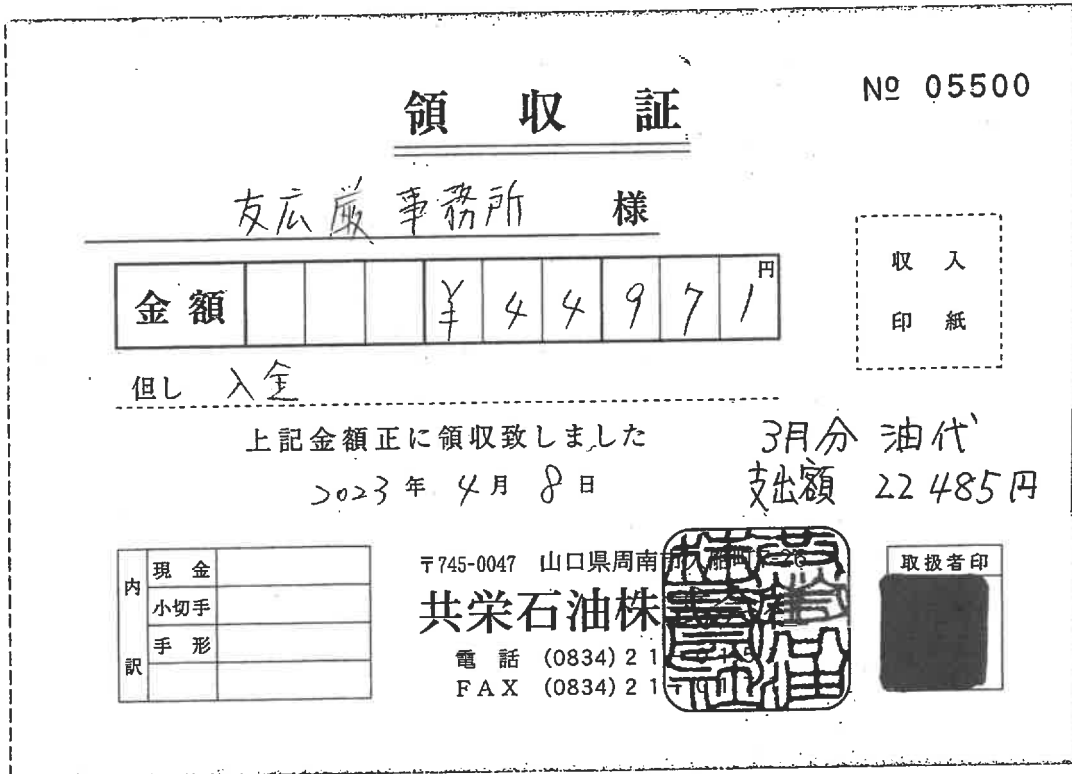 領収証
№ 05500
友広巌事務所 様
金額 ¥44971円
収入
印紙
但し 入金
上記金額正に領収致しました
3月分 油代
2023年 4月 8日
支出額 22485円
内訳
現金
小切手
手形
〒745-0047 山口県周南市入船町7-26
共栄石油株式会社
電話 (0834) 21
FAX (0834) 21
取扱者印